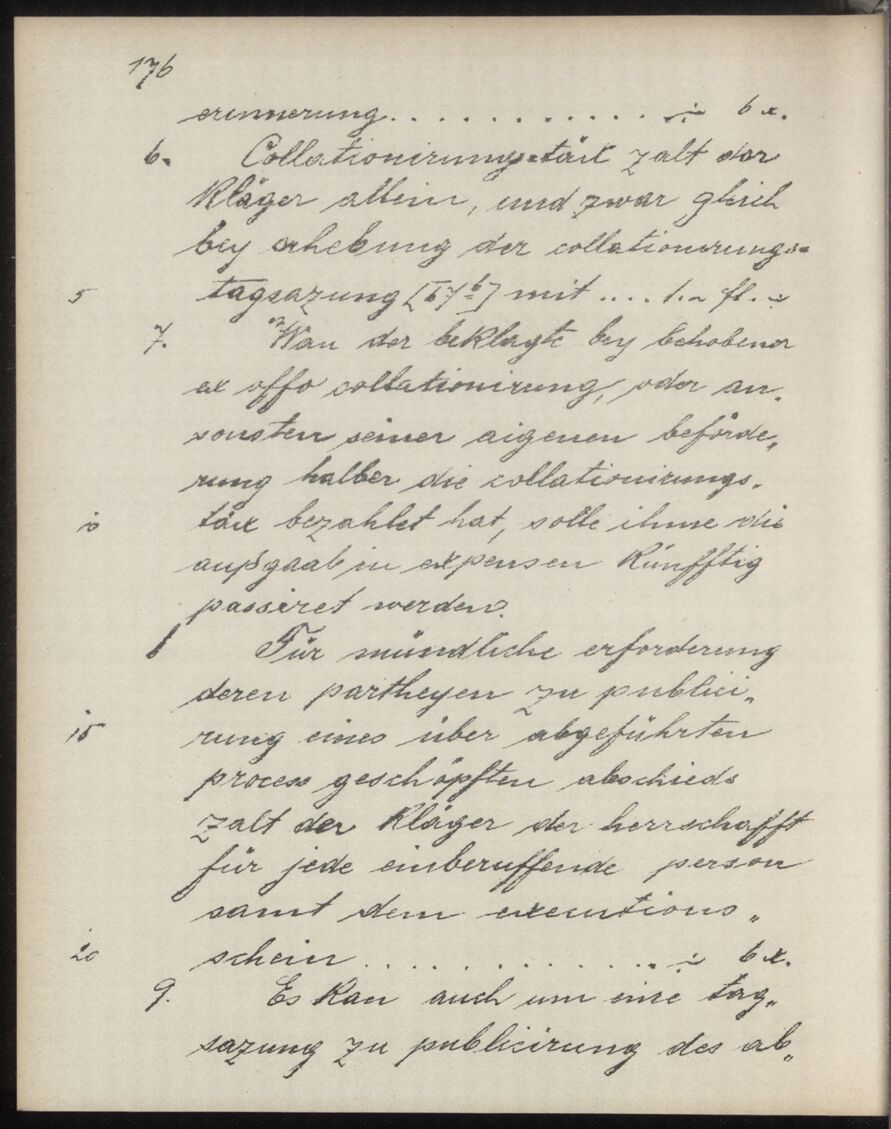 176
erinnerung . . . . . . . . . . . . . ÷ 6 x.
6. Collationirungs-täx zalt der
Kläger allein, und zwar gleich
bey erhebung der collationirungs=
5 tagsazung [67 b] mit .... 1.~ fl. ~
7. Wan der beklagte bey behobener
ex offo collationirung, oder an„
sonsten seiner aigenen beförde„
rung halber die collationirungs„
10 täx bezahlet hat, solle ihme die
außgaab in expensen künfftig
passiret werden.
8 Für mündliche erforderung
deren partheyen zu publici„
15 rung eines über abgeführten
process geschöpften abschieds
zalt der Kläger der herrschafft
für jede einberuffende person
samt dem executions„
20 schein . . . . . . . . . . . . . ÷ 6 x.
9. Es kan auch um eine tag„
sazung zu publicirung des ab„